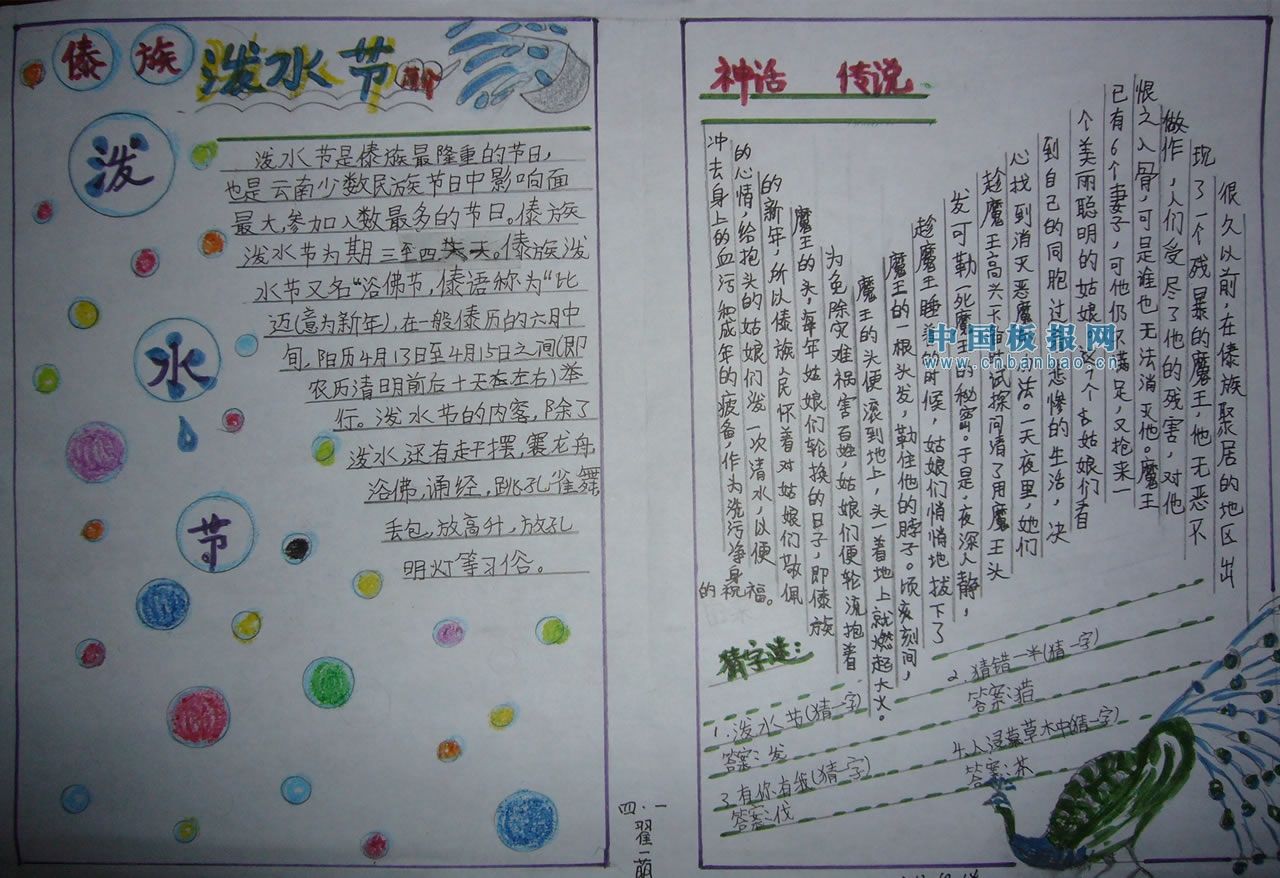 傣族
泼水节
简介
泼
水
节
泼水节是傣族最隆重的节日,
也是云南少数民族节日中影响面
最大,参加人数最多的节日。傣族
泼水节为期三至四天。傣族泼
水节又名“浴佛节,傣语称为“比
迈(意为新年),在一般傣历的六月中
旬,阳历4月13日至4月15日之间(即
农历清明前后十天左右)举
行。泼水节的内容,除了
泼水,还有赶摆,赛龙舟
浴佛,诵经,跳孔雀舞
丢包,放高升,放孔
明灯等习俗。
四·一
翟一萌
神话 传说
很久以前,在傣族聚居的地区出
现了一个残暴的魔王,他无恶不
做作,人们受尽了他的残害,对他
恨之入骨,可是谁也无法消灭他。魔王
已有6个妻子,可他仍不满足,又抢来一
个美丽聪明的姑娘。这个姑娘们看
到自己的同胞过悲惨的生活,决
心找到消灭恶魔的法。一天夜里,她们
趁魔王高兴试探问清了用魔王头
发可勒死魔王的秘密。于是,夜深人静,
趁魔王睡的时候,姑娘们悄悄地拔下了
魔王的一根头发,勒住他的脖子。顷刻间,
魔王的头便滚到地上,头一着地上就燃起大火。
为免除灾难祸害百姓,姑娘们便轮流抱着
魔王的头,每年姑娘们轮换的日子,即傣族
的新年,所以傣族人民怀着对姑娘们敬佩
的心情,给抱头的姑娘们泼一次清水,以便
冲去身上的血污和成年的疲备,作为洗污净身
的祝福。
猜字迷:
1.泼水节(猜一字)
答案:发
2.猜错一半(猜一字)
答案:猎
3.有你有我(猜一字)
答案:伐
4.人浸草木中(猜一字)
答案:茶
中国板报网
www.cnbanbao.cn